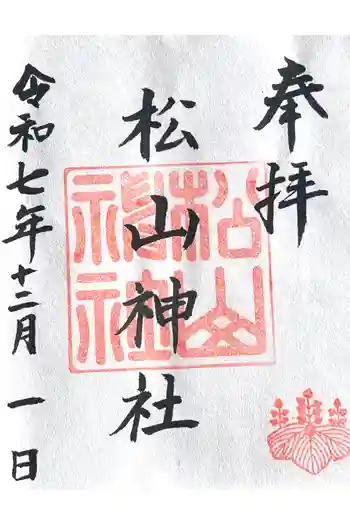 奉拝
松山神社
令和七年十二月一日
松山
神社